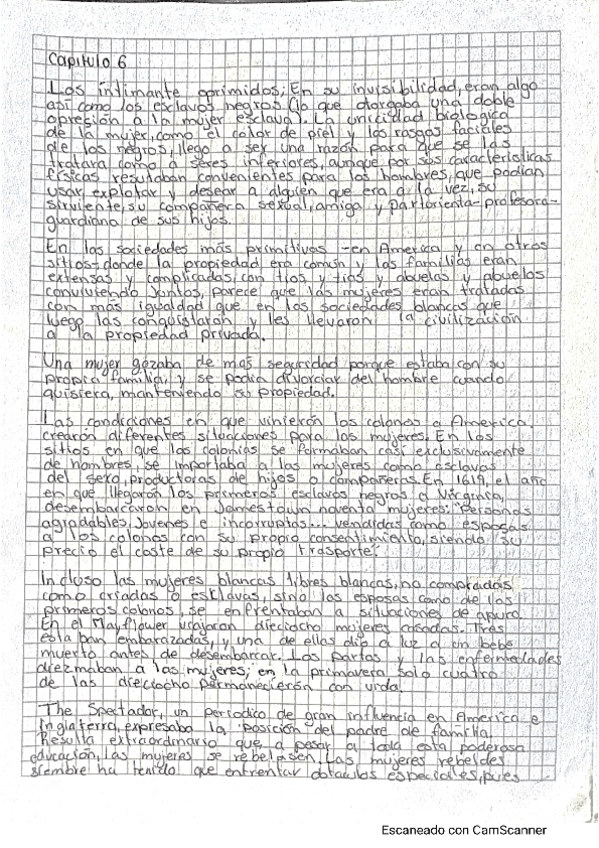 Capitulo 6
Los íntimante oprimidos; En su invisibilidad, eran algo
así como los esclavos negros (lo que otorgaba una doble
opresión a la mujer esclava). La unicidad biologica
de la mujer, como el color de piel y los rasgos faciales
de los negros, llego a ser una razón para que se las
tratara como a seres inferiores, aunque por sus caracteristicas
físicas resultaban convenientes para los hombres, que podian
usar, explotar y desear a alguien que era a la vez, su
sirviente, su compañera sexual, amiga y partorienta-profesora-
guardiana de sus hijos.
En las sociedades más primitivas -en America y en otros
sitios- donde la propiedad era común y las familias eran
extensas y complicadas, con tíos y tías y abuelas y abuelos
conviviendo juntos, parece que las mujeres eran tratadas
con más igualdad que en las sociedades blancas que
luego las conquistaron y les llevaron la civilización
a la propiedad privada.
Una mujer gozaba de más seguridad porque estaba con su
propia familia, y se podia divorciar del hombre cuando
quisiera, manteniendo su propiedad.
Las condiciones en que vinierón los colonos a America,
crearón diferentes situaciones para las mujeres. En los
sitios en que las colonias se formaban casi exclusivamente
de hombres, se importaba a las mujeres como esclavas
del sexo, productoras de hijos o compañeras. En 1619, el año
en que llegarón los primeros esclavos negros a Virginia,
desembarcaron en Jamestown noventa mujeres: "Personas
agradables, Jovenes e incorruptas... vendidas como esposas
a los colonos con su propio consentimiento, siendo su
precio el coste de su propio trasporte".
Incluso las mujeres blancas libres blancas, no compradas
como criadas o esclavas, sino las esposas como de los
primeros colonos, se enfrentaban a situaciones de apuro.
En el Mayflower viajaron dieciocho mujeres casadas. Tres
estaban embarazadas, y una de ellas dio a luz a un bebe
muerto antes de desembarcar. Los partos y las enfermedades
diezmaban a las mujeres; en la primavera solo cuatro
de las dieciocho permanecierón con vida.
The Spectador, un periodico de gran influencia en America e
Inglaterra, expresaba la posición del padre de familia.
Resulta extraordinario que, a pesar a toda esta poderosa
educación, las mujeres se rebelasen. Las mujeres rebeldes
siembre ha tenido que enfrentar obtaculos especiales, pues
Escaneado con CamScanner